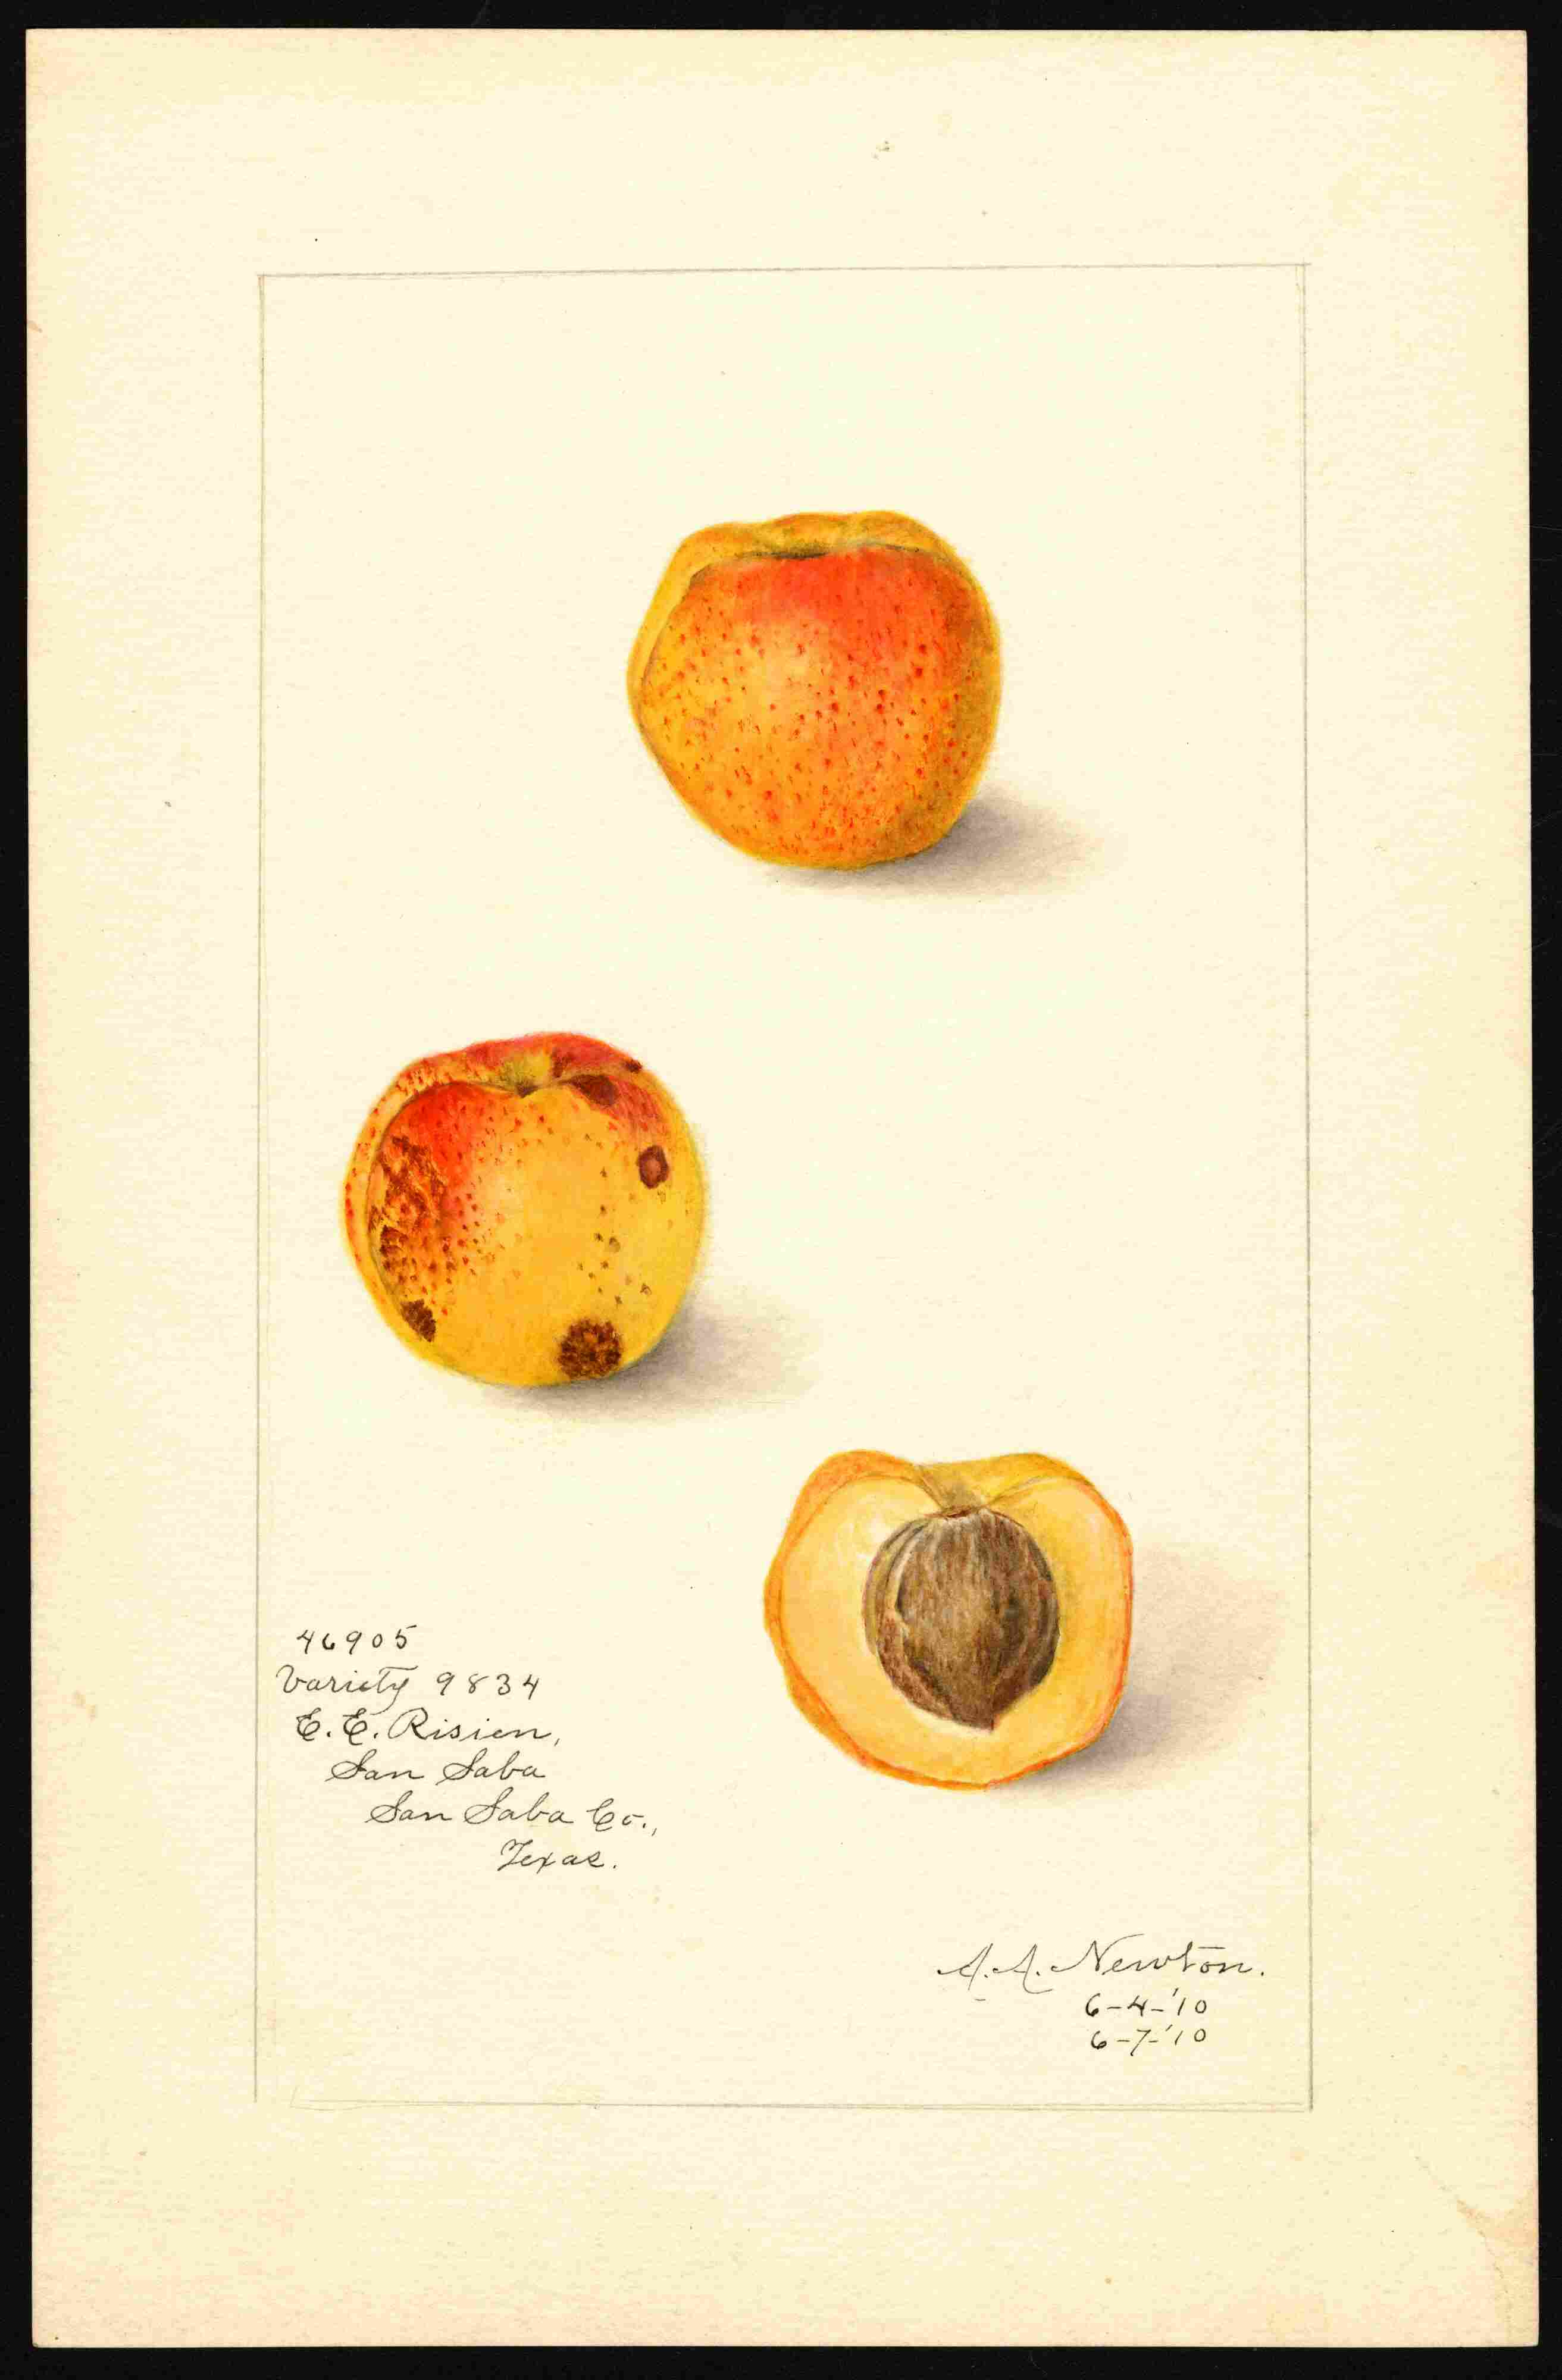 46905
Variety 9834
E. E. Risien,
San Saba
San Saba Co.,
Texas.
A. A. Newton.
6-4-'10
6-7-'10